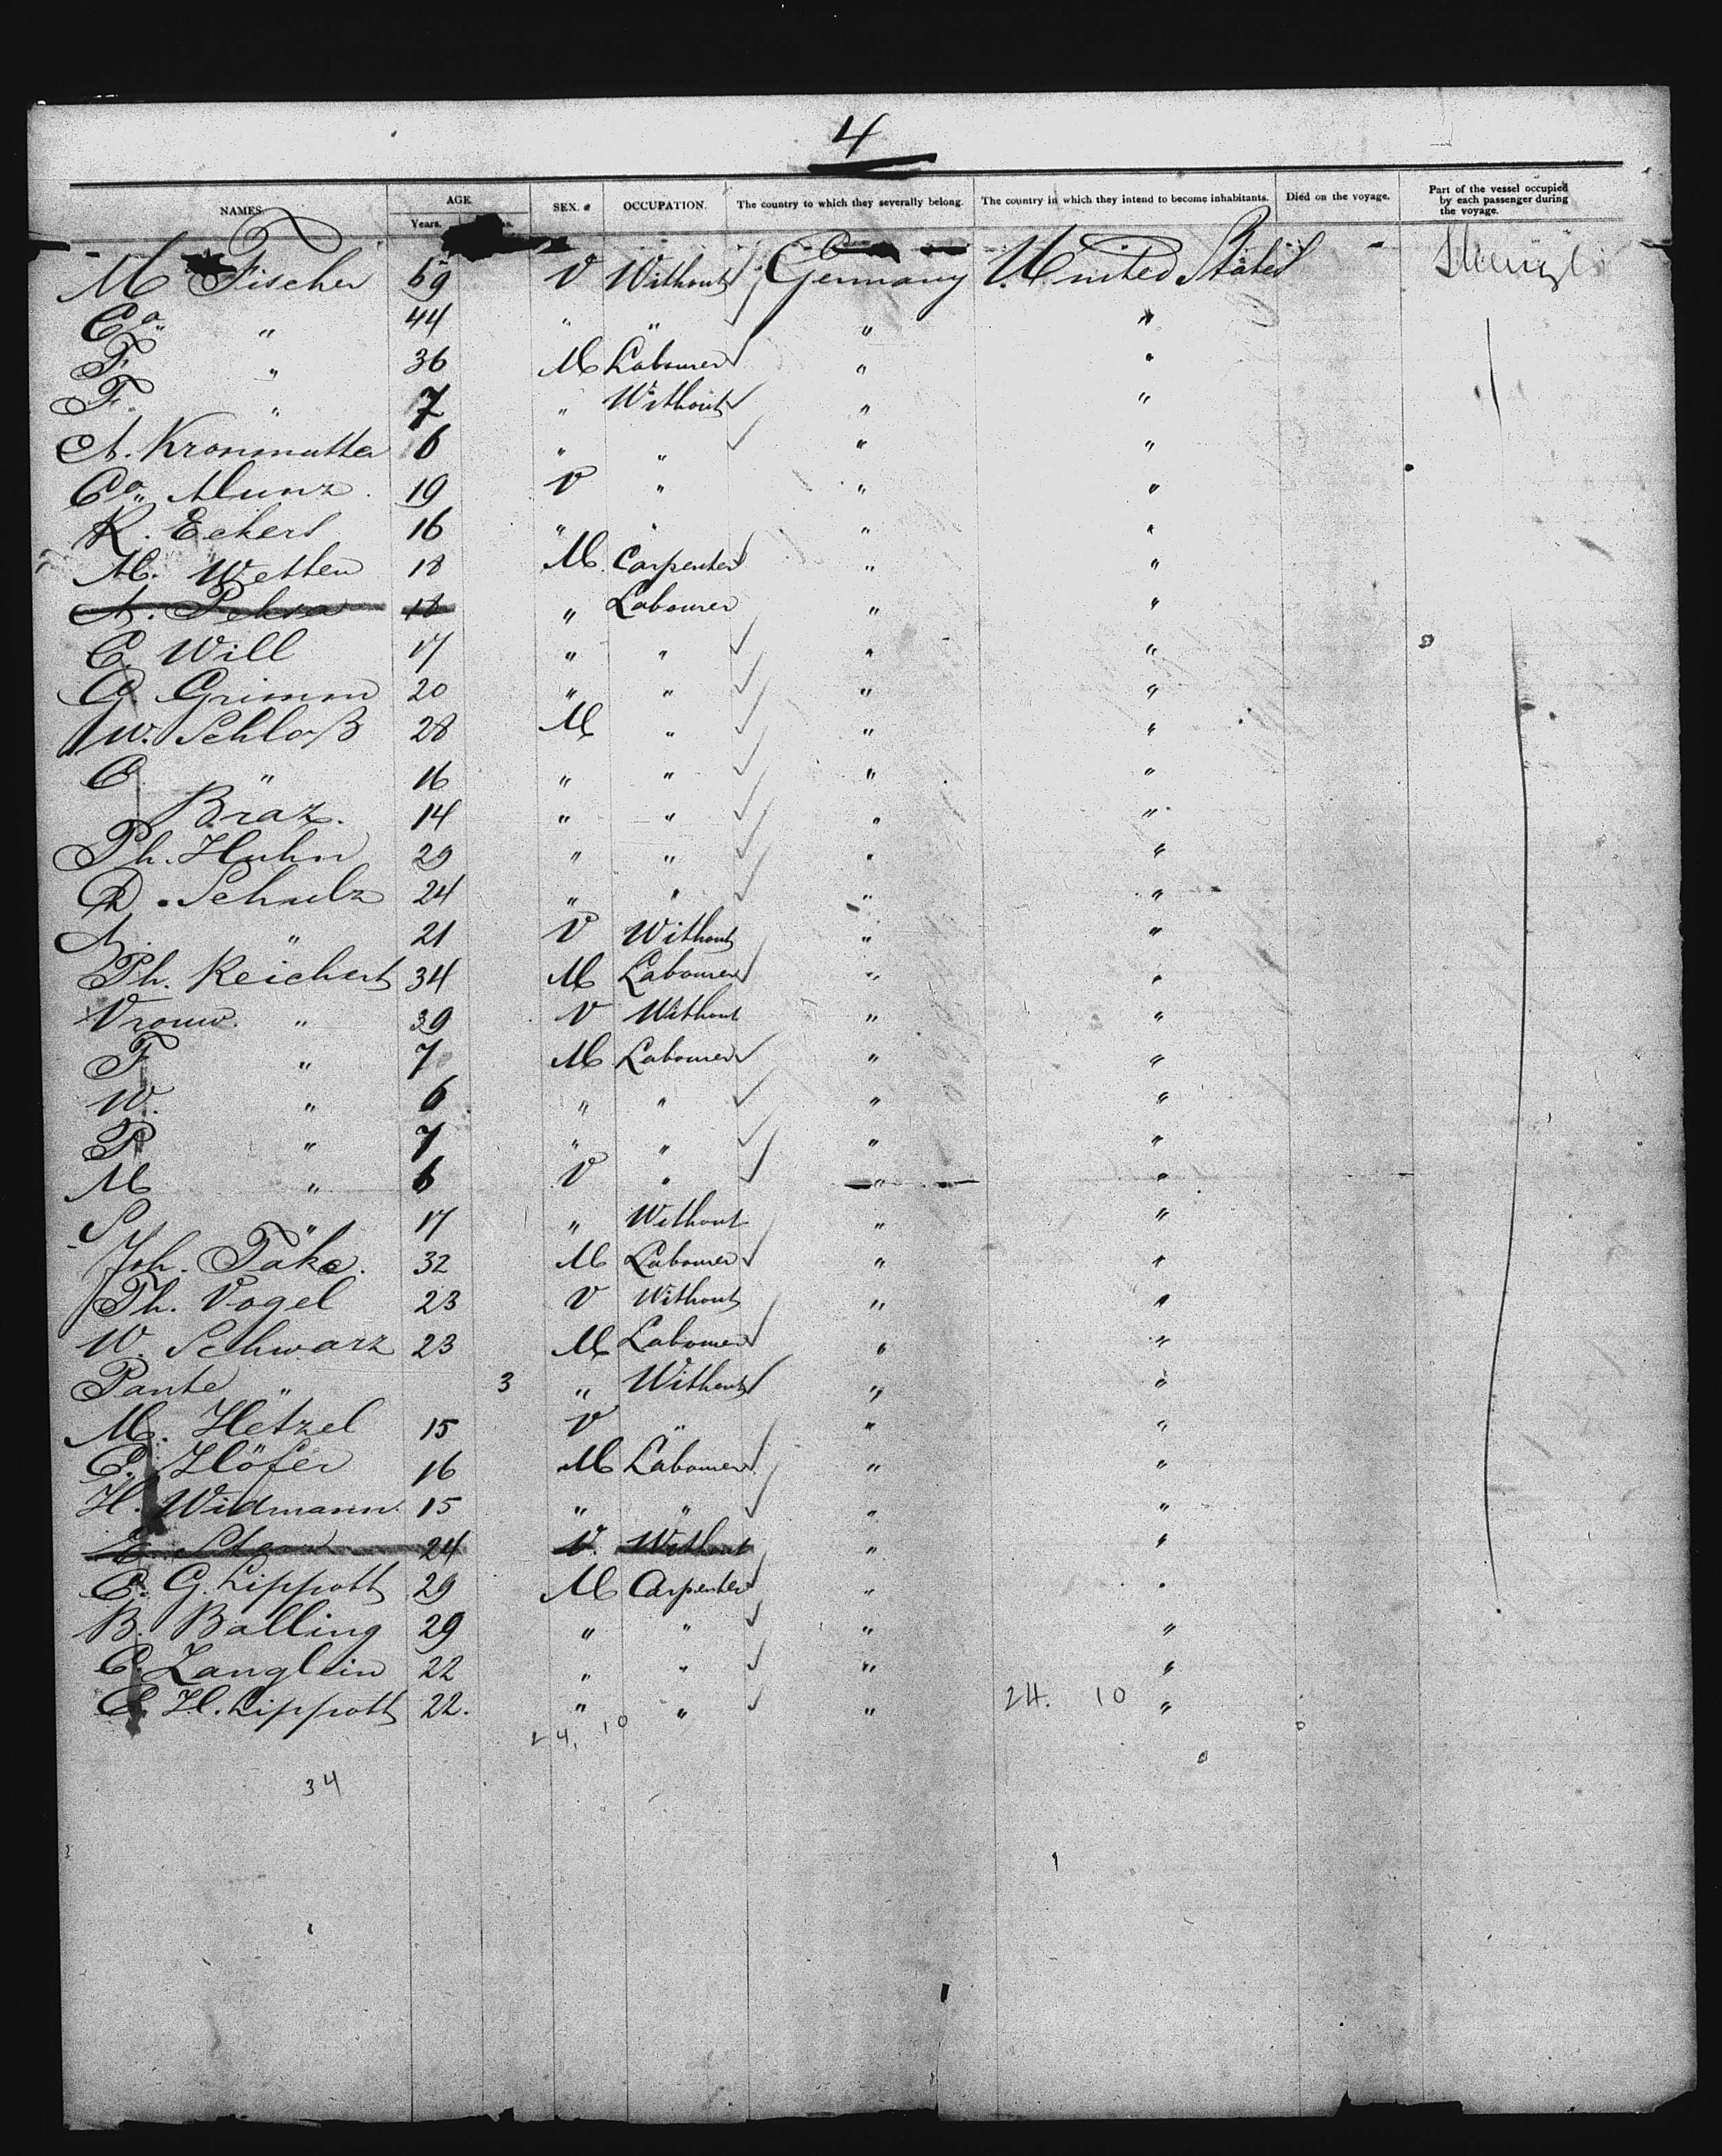 4
NAMES. AGE. Years. SEX. OCCUPATION. The country to which they severally belong. The country in which they intend to become inhabitants. Died on the voyage. Part of the vessel occupied by each passenger during the voyage.
M Fischer 59 V Without Germany United States
Co „ 44 „ „ „ „
F „ 36 M Labourer „ „
F. „ 7 „ Without „ „
A. Kronmutter 6 „ „ „ „
Co „ Munz. 19 V „ „ „
R. Eckert 16 „ „ „ „
M. Wetten 18 M. Carpenter „ „
18 „ Labourer „ „
C. Will 17 „ „ „ „
Grimm 20 „ „ „ „
W. Schloß 28 M „ „ „
C. „ 16 „ „ „ „
Braz. 14 „ „ „ „
Ph. Huhn 29 „ „ „ „
D. Schulz 24 „ „ „ „
A. „ 21 V Without „ „
Ph. Reichert 34 M Labourer „ „
Vrouw. „ 39 V Without „ „
F „ 7 M Labourer „ „
W. „ 6 „ „ „ „
P „ 7 „ „ „ „
M „ 6 V „ „ „
S „ 17 „ Without „ „
Joh. Take. 32 M Labourer „ „
Th. Vogel 23 V Without „ „
W. Schwarz 23 M Labourer „ „
Pante „ 3 „ Without „ „
M. Hetzel 15 V „ „ „
C. Höfer 16 M Labourer „ „
H. Widmann. 15 „ „ „ „
24 V. Without „ „
C. G. Lippott 29 M Carpenter „ „
B. Balling 29 „ „ „ „
C. Langlein 22 „ „ „ „
C. H. Lippott 22. „ „ „ 24. 10 „
24, 10
34